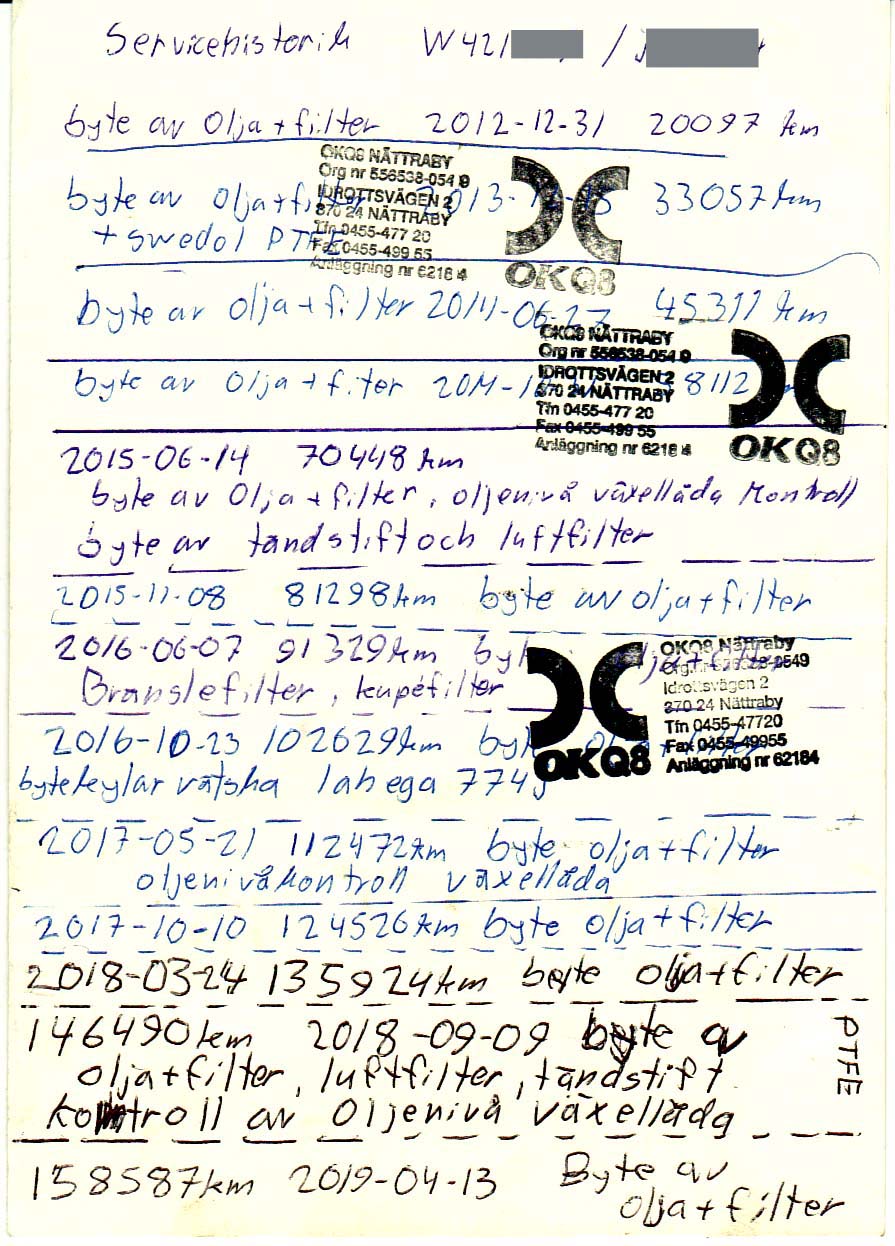 Servicehistorik W421 /
byte av Olja + filter 2012-12-31 20097 km
OKQ8 NÄTTRABY
Org nr 556538-054 9
IDROTTSVÄGEN 2
370 24 NÄTTRABY
Tfn 0455-477 20
Fax 0455-499 55
Anläggning nr 6218 4
OKQ8
byte av Olja + filter 2013-12-15 33057 km
+ swedol PTFE
byte av olja + filter 2014-06-27 45311 km
OKQ8 NÄTTRABY
Org nr 556538-054 9
IDROTTSVÄGEN 2
370 24 NÄTTRABY
Tfn 0455-477 20
Fax 0455-499 55
Anläggning nr 6218 4
OKQ8
byte av Olja + filter 2014-1 8112
2015-06-14 70448 km
byte av Olja + filter, oljenivå växellåda Kontroll
byte av tändstift och luftfilter
2015-11-08 81298 km byte av olja + filter
2016-06-07 91329 km byte olja + filter
Bränslefilter, kupéfilter
OKQ8
OKQ8 Nättraby
Idrottsvägen 2
370 24 Nättraby
Tfn 0455-47720
Fax 0455-49955
Anläggning nr 62184
2016-10-23 102629 km byte olja + filter
byte kylar vätska lahega 774
2017-05-21 112472 km byte olja + filter
oljenivåkontroll växellåda
2017-10-10 124526 km byte olja + filter
2018-03-24 135924 km byte olja + filter
146490 km 2018-09-09 byte av
olja + filter, luftfilter, tändstift
kontroll av Oljenivå växellåda
PTFE
158587 km 2019-04-13 Byte av
olja + filter